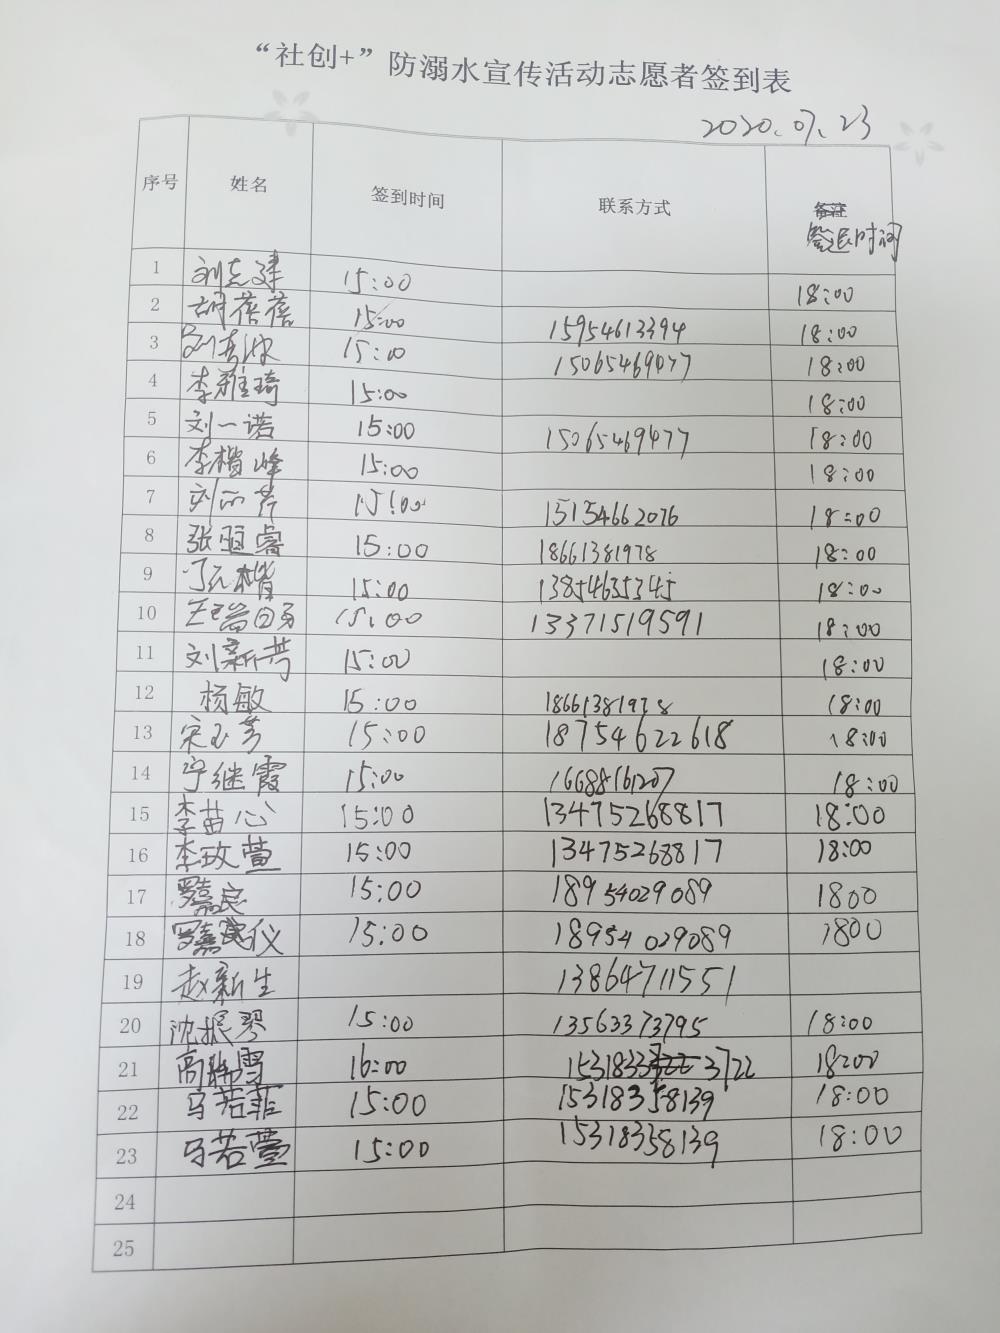 “社创+”防溺水宣传活动志愿者签到表
2020.07.23
序号 姓名 签到时间 联系方式 备注 签退时间
1 刘志建 15:00 18:00
2 胡蓓蓓 15:00 15954613394 18:00
3 刘春波 15:00 15065469077 18:00
4 李雅琦 15:00 18:00
5 刘一诺 15:00 15065469077 18:00
6 李楷峰 15:00 18:00
7 刘丽芹 15:00 15154662076 18:00
8 张恒睿 15:00 18661381978 18:00
9 丁元楷 15:00 13854635345 18:00
10 15:00 13371519591 18:00
11 刘新芳 15:00 18:00
12 杨敏 15:00 18661381978 18:00
13 宋玉芳 15:00 18754622618 18:00
14 宁继霞 15:00 16688161207 18:00
15 李苗心 15:00 13475268817 18:00
16 李玫萱 15:00 13475268817 18:00
17 罗嘉良 15:00 18954029089 1800
18 罗嘉仪 15:00 18954029089 1800
19 赵新生 13864711551
20 沈振琴 15:00 13563373795 18:00
21 高 雪 16:00 1531833 3722 18:00
22 马若菲 15:00 15318358139 18:00
23 马若萱 15:00 15318358139 18:00
24
25